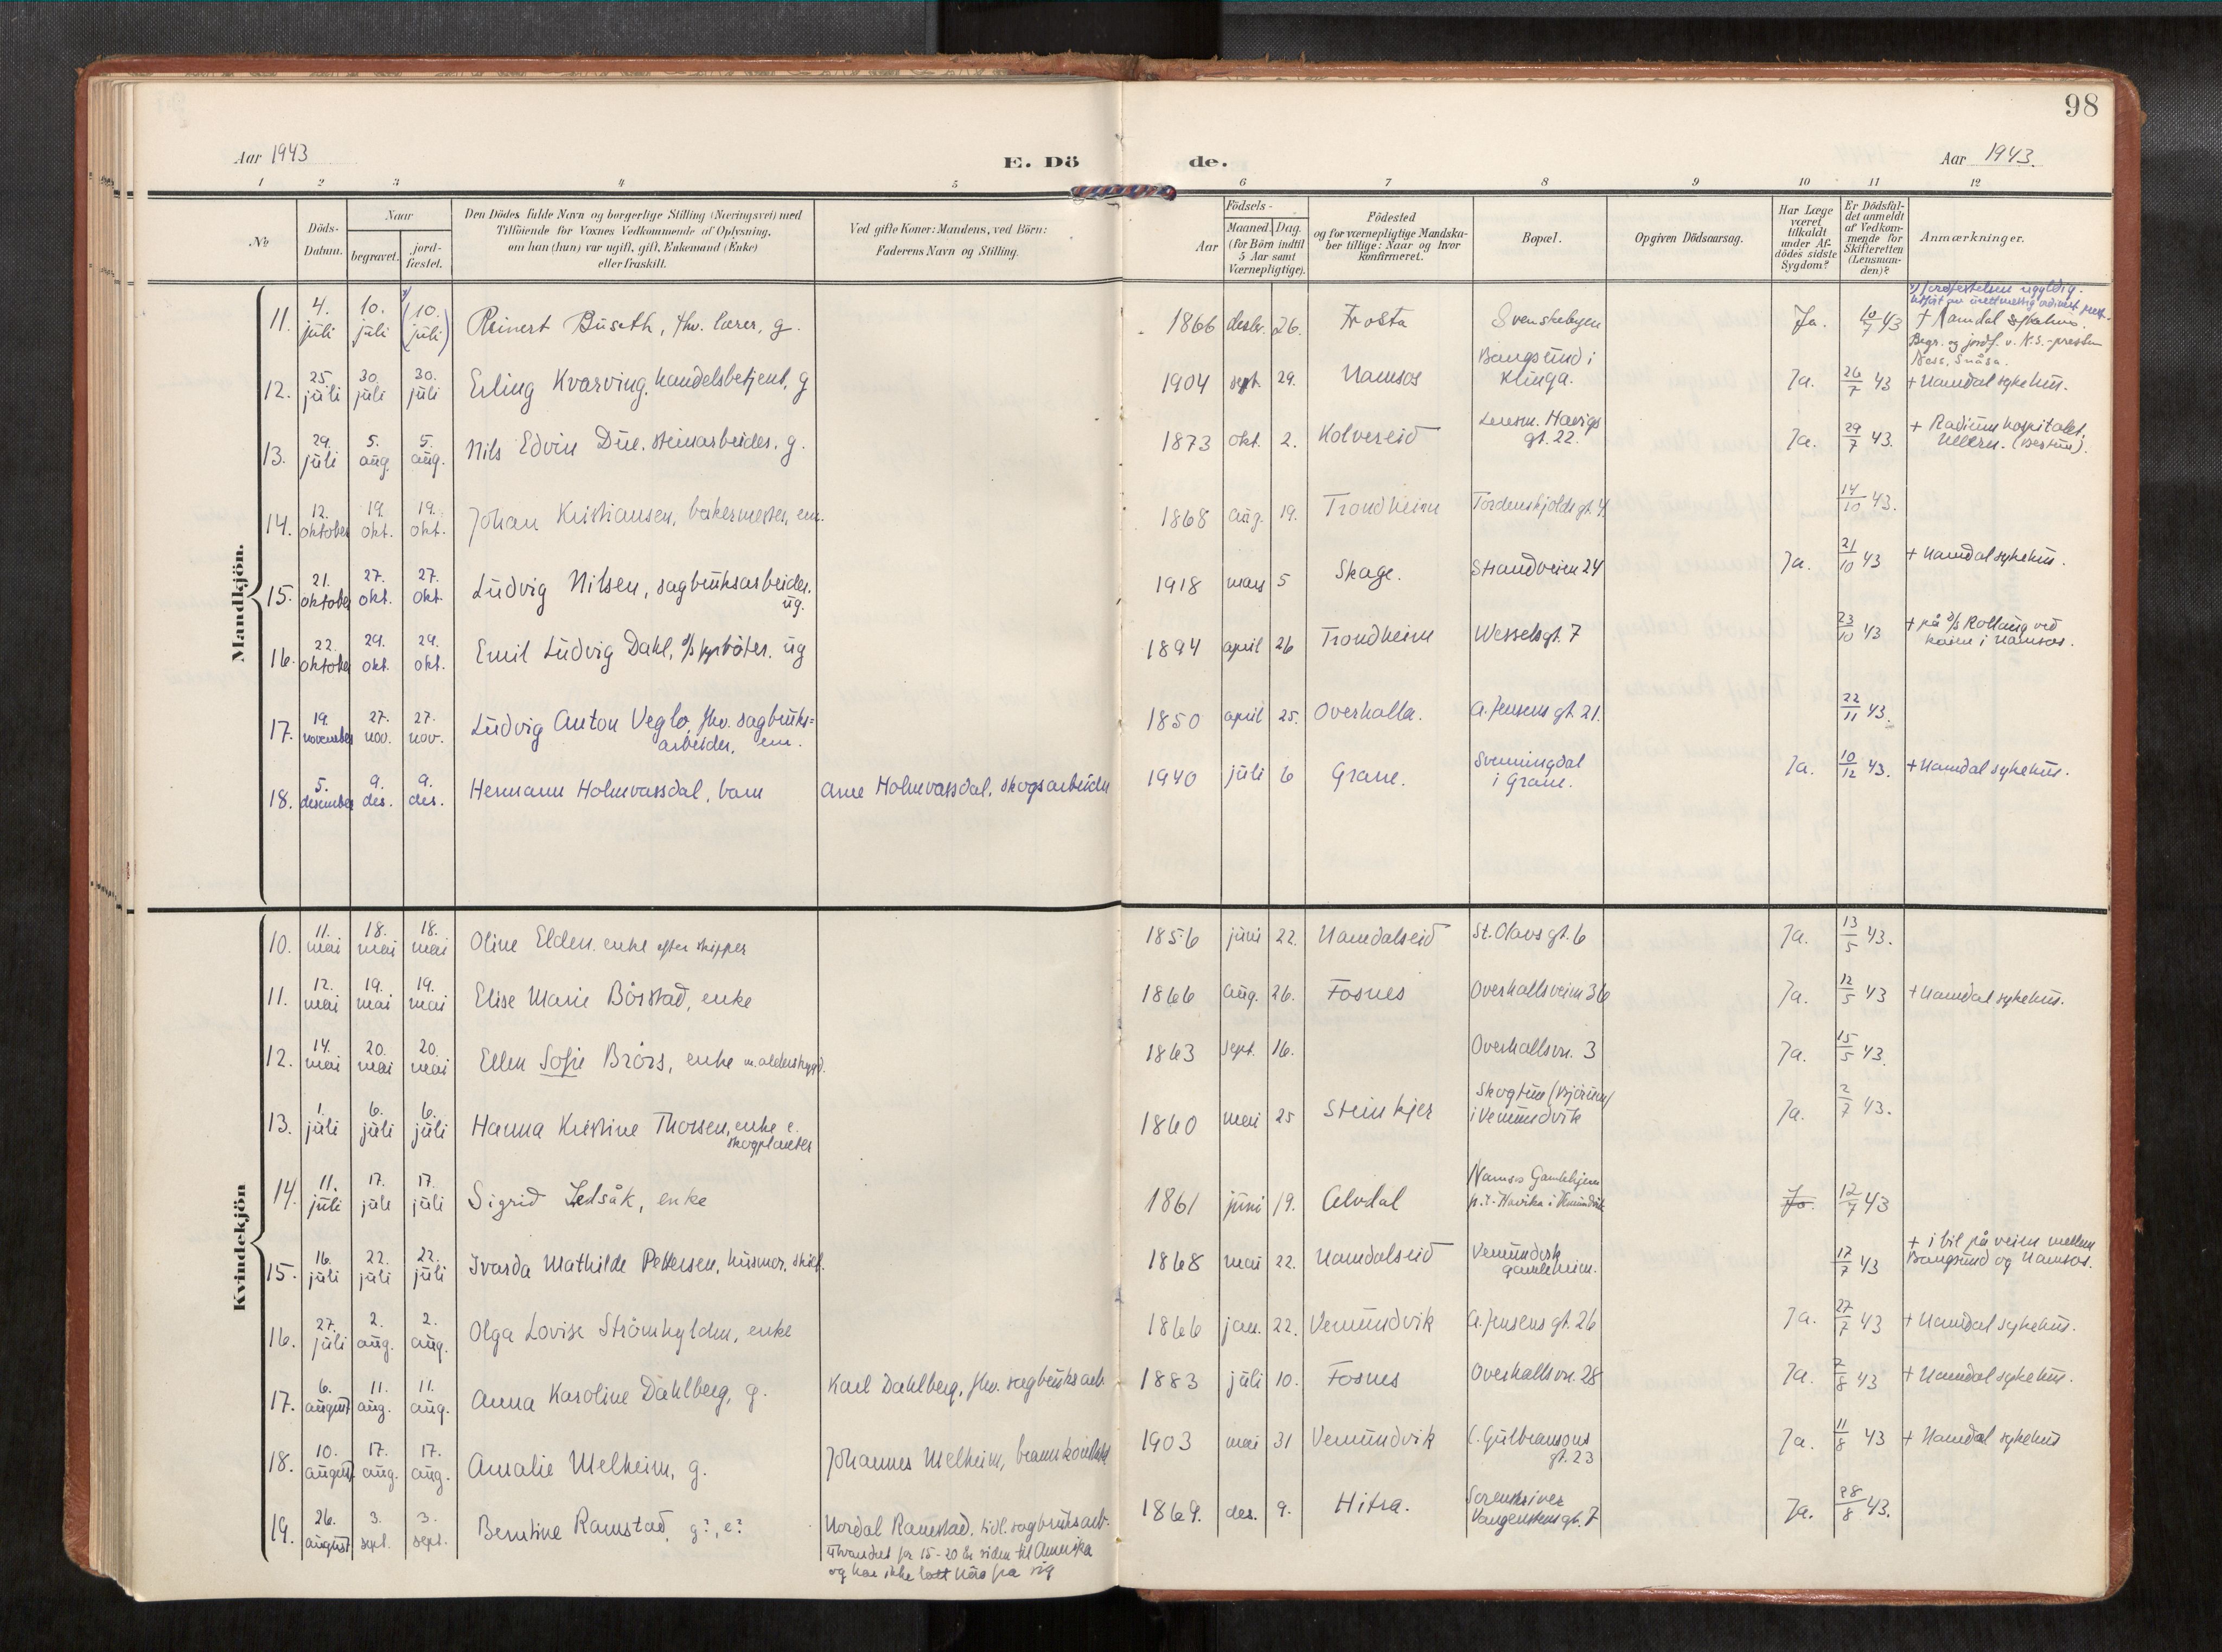 98
Aar 1943
E. Dö de.
Aar 1943.
1 2 3 4 5 6 7 8 9 10 11 12
№
Döds-Datum.
Naar
begravet.
jord-fæstet.
Den Dödes fulde Navn og borgerlige Stilling (Næringsvei) med
Tilföiende for Voxnes Vedkommende af Oplysning,
om han (hun) var ugift, gift, Enkemand (Enke)
eller fraskilt.
Ved gifte Koner: Mandens, ved Börn:
Faderens Navn og Stilling.
Födsels-
Aar
Maaned. Dag.
(for Börn indtil
5 Aar samt
Værnepligtige).
Födested
og for værnepligtige Mandska-
ber tillige: Naar og hvor
konfirmeret.
Bopæl.
Opgiven Dödsaarsag.
Har Læge
været
tilkaldt
under Af-
dödes sidste
Sygdom?
Er Dödsfal-
det anmeldt
af Vedkom-
mende for
Skifteretten
(Lensman-
den)?
Anmærkninger.
Mandkjön.
11. 4. juli 10. juli (10. juli) Reinert Buseth, fhv. lærer, g. 1866 desbr. 26. Frosta Svenskebyen Ja. 10/7 43 Jordfestelsen ugyldig.
+ Namdal sykehus.
Begr. og jordf. v. N.S.-presten
Næss, Snåsa.
12. 25. juli 30. juli 30. juli Erling Kvarving, handelsbetjent, g 1904 sept. 29. Namsos Bangsund i Klinga. Ja. 26/7 43 + Namdal sykehus.
13. 29. juli 5. aug. 5. aug. Nils Edvin Due, steinarbeider, g. 1873 okt. 2. Kolvereid Lensm. Havigs gt. 22. Ja. 29/7 43. + Radiumhospitalet,
Ullern. (Bestum).
14. 12. oktober 19. okt. 19. okt. Johan Kristiansen, bakermester, em. 1868 aug. 19. Trondheim Tordenskjolds gt. 4. 14/10 43.
15. 21. oktober 27. okt. 27. okt. Ludvig Nilsen, sagbruksarbeider, ug. 1918 mars 5 Skage. Strandveien 24 Ja. 21/10 43 + Namdal sykehus.
16. 22. oktober 29. okt. 29. okt. Emil Ludvig Dahl, fyrbøter, ug 1894 april 26 Trondheim Wesselsgt. 7 23/10 43 + på Rollaug ved
kaien i Namsos.
17. 19. november 27. nov. 27. nov. Ludvig Anton Veglo, fhv. sagbruks=
arbeider, em. 1850 april 25. Overhalla. A. Jensens gt. 21. 22/11 43.
18. 5. desember 9. des. 9. des. Hermann Holmvassdal, barn Arne Holmvassdal, skogsarbeider 1940 juli 6 Grane. Svenningdal i Grane. Ja. 10/12 43. + Namdal sykehus.
Kvindekjön
10. 11. mai 18. mai 18. mai Oline Elden, enke efter skipper 1856 juni 22. Namdalseid St. Olavs gt. 6 Ja. 13/5 43.
11. 12. mai 19. mai 19. mai Elise Marie Börstad, enke 1866 aug. 26. Fosnes Overhallsveien 36 Ja. 12/5 43 + Namdal sykehus.
12. 14. mai 20. mai 20. mai Ellen Sofie Brørs, enke m. alderstrygd. 1863 sept. 16. Overhallsvn. 3 Ja. 15/5 43.
13. 1. juli 6. juli 6. juli Hanna Kristine Thorsen, enke e.
skogplanter 1860 mai 25 Steinkjer Skogtun (Bjørum) i Vemundvik Ja. 2/7 43.
14. 11. juli 17. juli 17. juli Sigrid Ledsåk, enke 1861 juni 19. Alvdal Namsos Gamlehjem
p.t. Havika i Vemundvik Ja. 12/7 43
15. 16. juli 22. juli 22. juli Ivarda Mathilde Pettersen, husmor, skilt. 1868 mai 22. Namdalseid Vemundvik gamleheim. 17/7 43 + i bil på veien mellem
Bangsund og Namsos.
16. 27. juli 2. aug. 2. aug. Olga Lovise Strömhylden, enke 1866 jan. 22. Vemundvik A. Jensens gt. 26 Ja. 27/7 43 + Namdal sykehus.
17. 6. august 11. aug. 11. aug. Anna Karoline Dahlberg, g. Karl Dahlberg, fhv. sagbruksarb. 1883 juli 10. Fosnes Overhallsvn. 28 Ja. 7/8 43 + Namdal sykehus.
18. 10. august 17. aug. 17. aug. Amalie Melheim, g. Johannes Melheim, 1903 mai 31 Vemundvik C. Gulbransons gt. 23 Ja. 11/8 43 + Namdal sykehus
19. 26. august 3. sept. 3. sept. Berntine Ramstad, g?, e? Nordal Ramstad, tidl. sagbruksarb.
utvandret for 15-20 år siden til Amerika
og har ikke latt høre fra sig 1869. des. 9. Hitra. Sorenskriver Vangenstens gt. 7 Ja. 28/8 43.